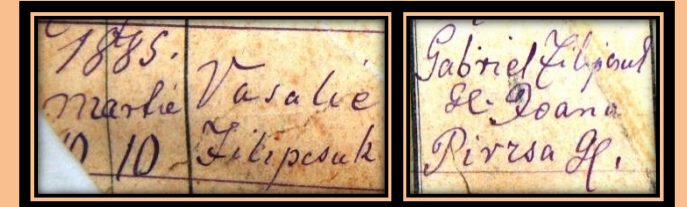 1885.
Martie
10 10
Vasalie
Filipcsuk
Gabriel Filipcsuk
gk. Ioana
Pirzsa gk.